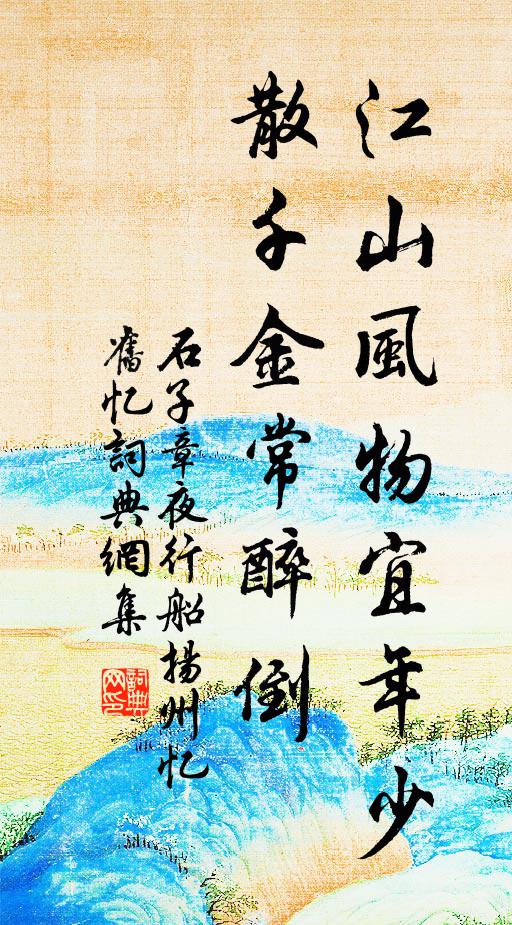 江山風物宜年少
散千金常醉倒
石子章夜行船揚州忆
舊忆詞典網集
詞典
网印